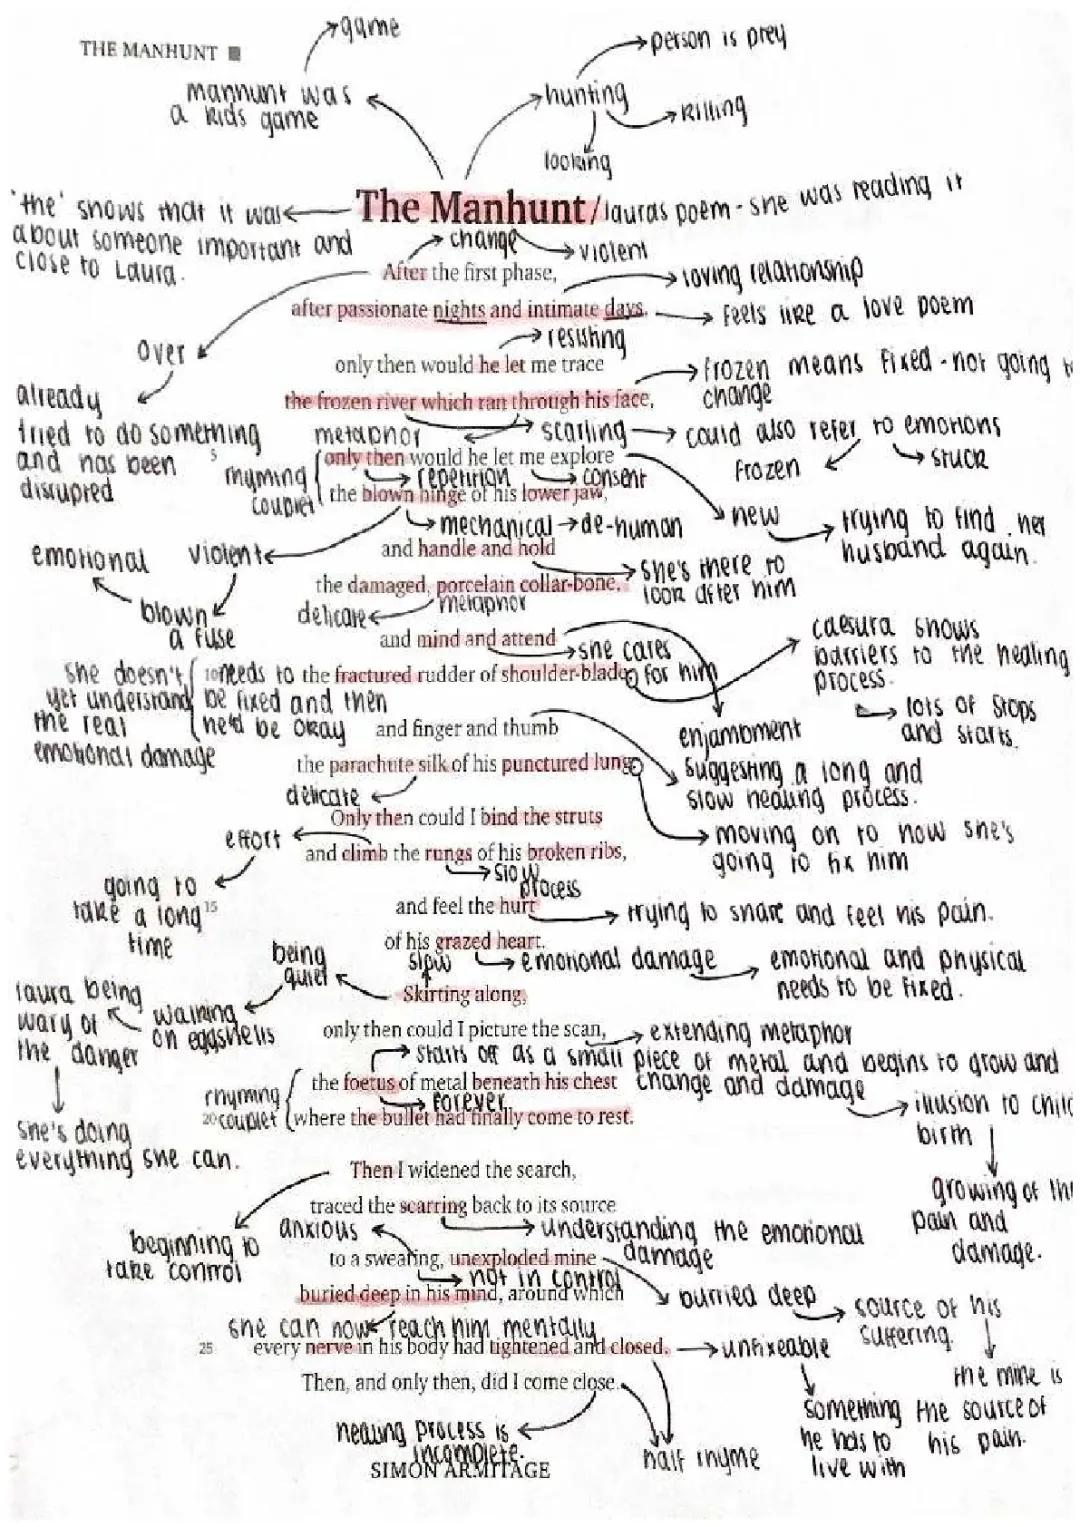 THE MANHUNT
game
person is prey
manhunt was
a kids game
hunting
killing
looking
'the' shows that it was
about someone important and
close to Laura.
The Manhunt / lauras poem - she was reading it
change
violent
After the first phase,
loving relationship
after passionate nights and intimate days,
feels like a love poem
over
resisting
only then would he let me trace
frozen means fixed - not going to
change
already
tried to do something
and has been
disrupted
the frozen river which ran through his face,
metaphor
scarring
could also refer to emotions
frozen
stuck
5
rhyming
couplet
only then would he let me explore
repetition
consent
the blown hinge of his lower jaw,
mechanical
de-human
new
trying to find her
husband again.
emotional
violent
blown
a fuse
and handle and hold
she's there to
look after him
the damaged, porcelain collar-bone,
delicate
metaphor
and mind and attend
she cares
for him
caesura shows
barriers to the healing
process.
lots of stops
and starts.
she doesn't
yet understand
the real
emotional damage
10
needs to
be fixed and then
he'd be okay
the fractured rudder of shoulder-blade,
enjambment
suggesting a long and
slow healing process.
and finger and thumb
the parachute silk of his punctured lung.
delicate
moving on to how she's
going to fix him
Only then could I bind the struts
effort
and climb the rungs of his broken ribs,
slow
process
going to
take a long
time
15
and feel the hurt
trying to share and feel his pain.
of his grazed heart.
emotional damage
emotional and physical
needs to be fixed.
being
quiet
slow
Skirting along,
walking
on eggshells
laura being
wary of
the danger
she's doing
everything she can.
only then could I picture the scan,
extending metaphor
starts off as a small piece of metal and begins to grow and
change and damage
the foetus of metal beneath his chest
rhyming
couplet
forever
20
where the bullet had finally come to rest.
illusion to child
birth
growing of the
pain and
damage.
Then I widened the search,
traced the scarring back to its source
beginning to
take control
anxious
understanding the emotional
damage
to a sweating, unexploded mine
not in control
buried deep in his mind, around which
burried deep
source of his
suffering.
the mine is
the source of
his pain.
she can now reach him mentally
25
every nerve in his body had tightened and closed.
unfixeable
something
he has to
live with
Then, and only then, did I come close.
healing process is
incomplete.
half rhyme
SIMON ARMITAGE